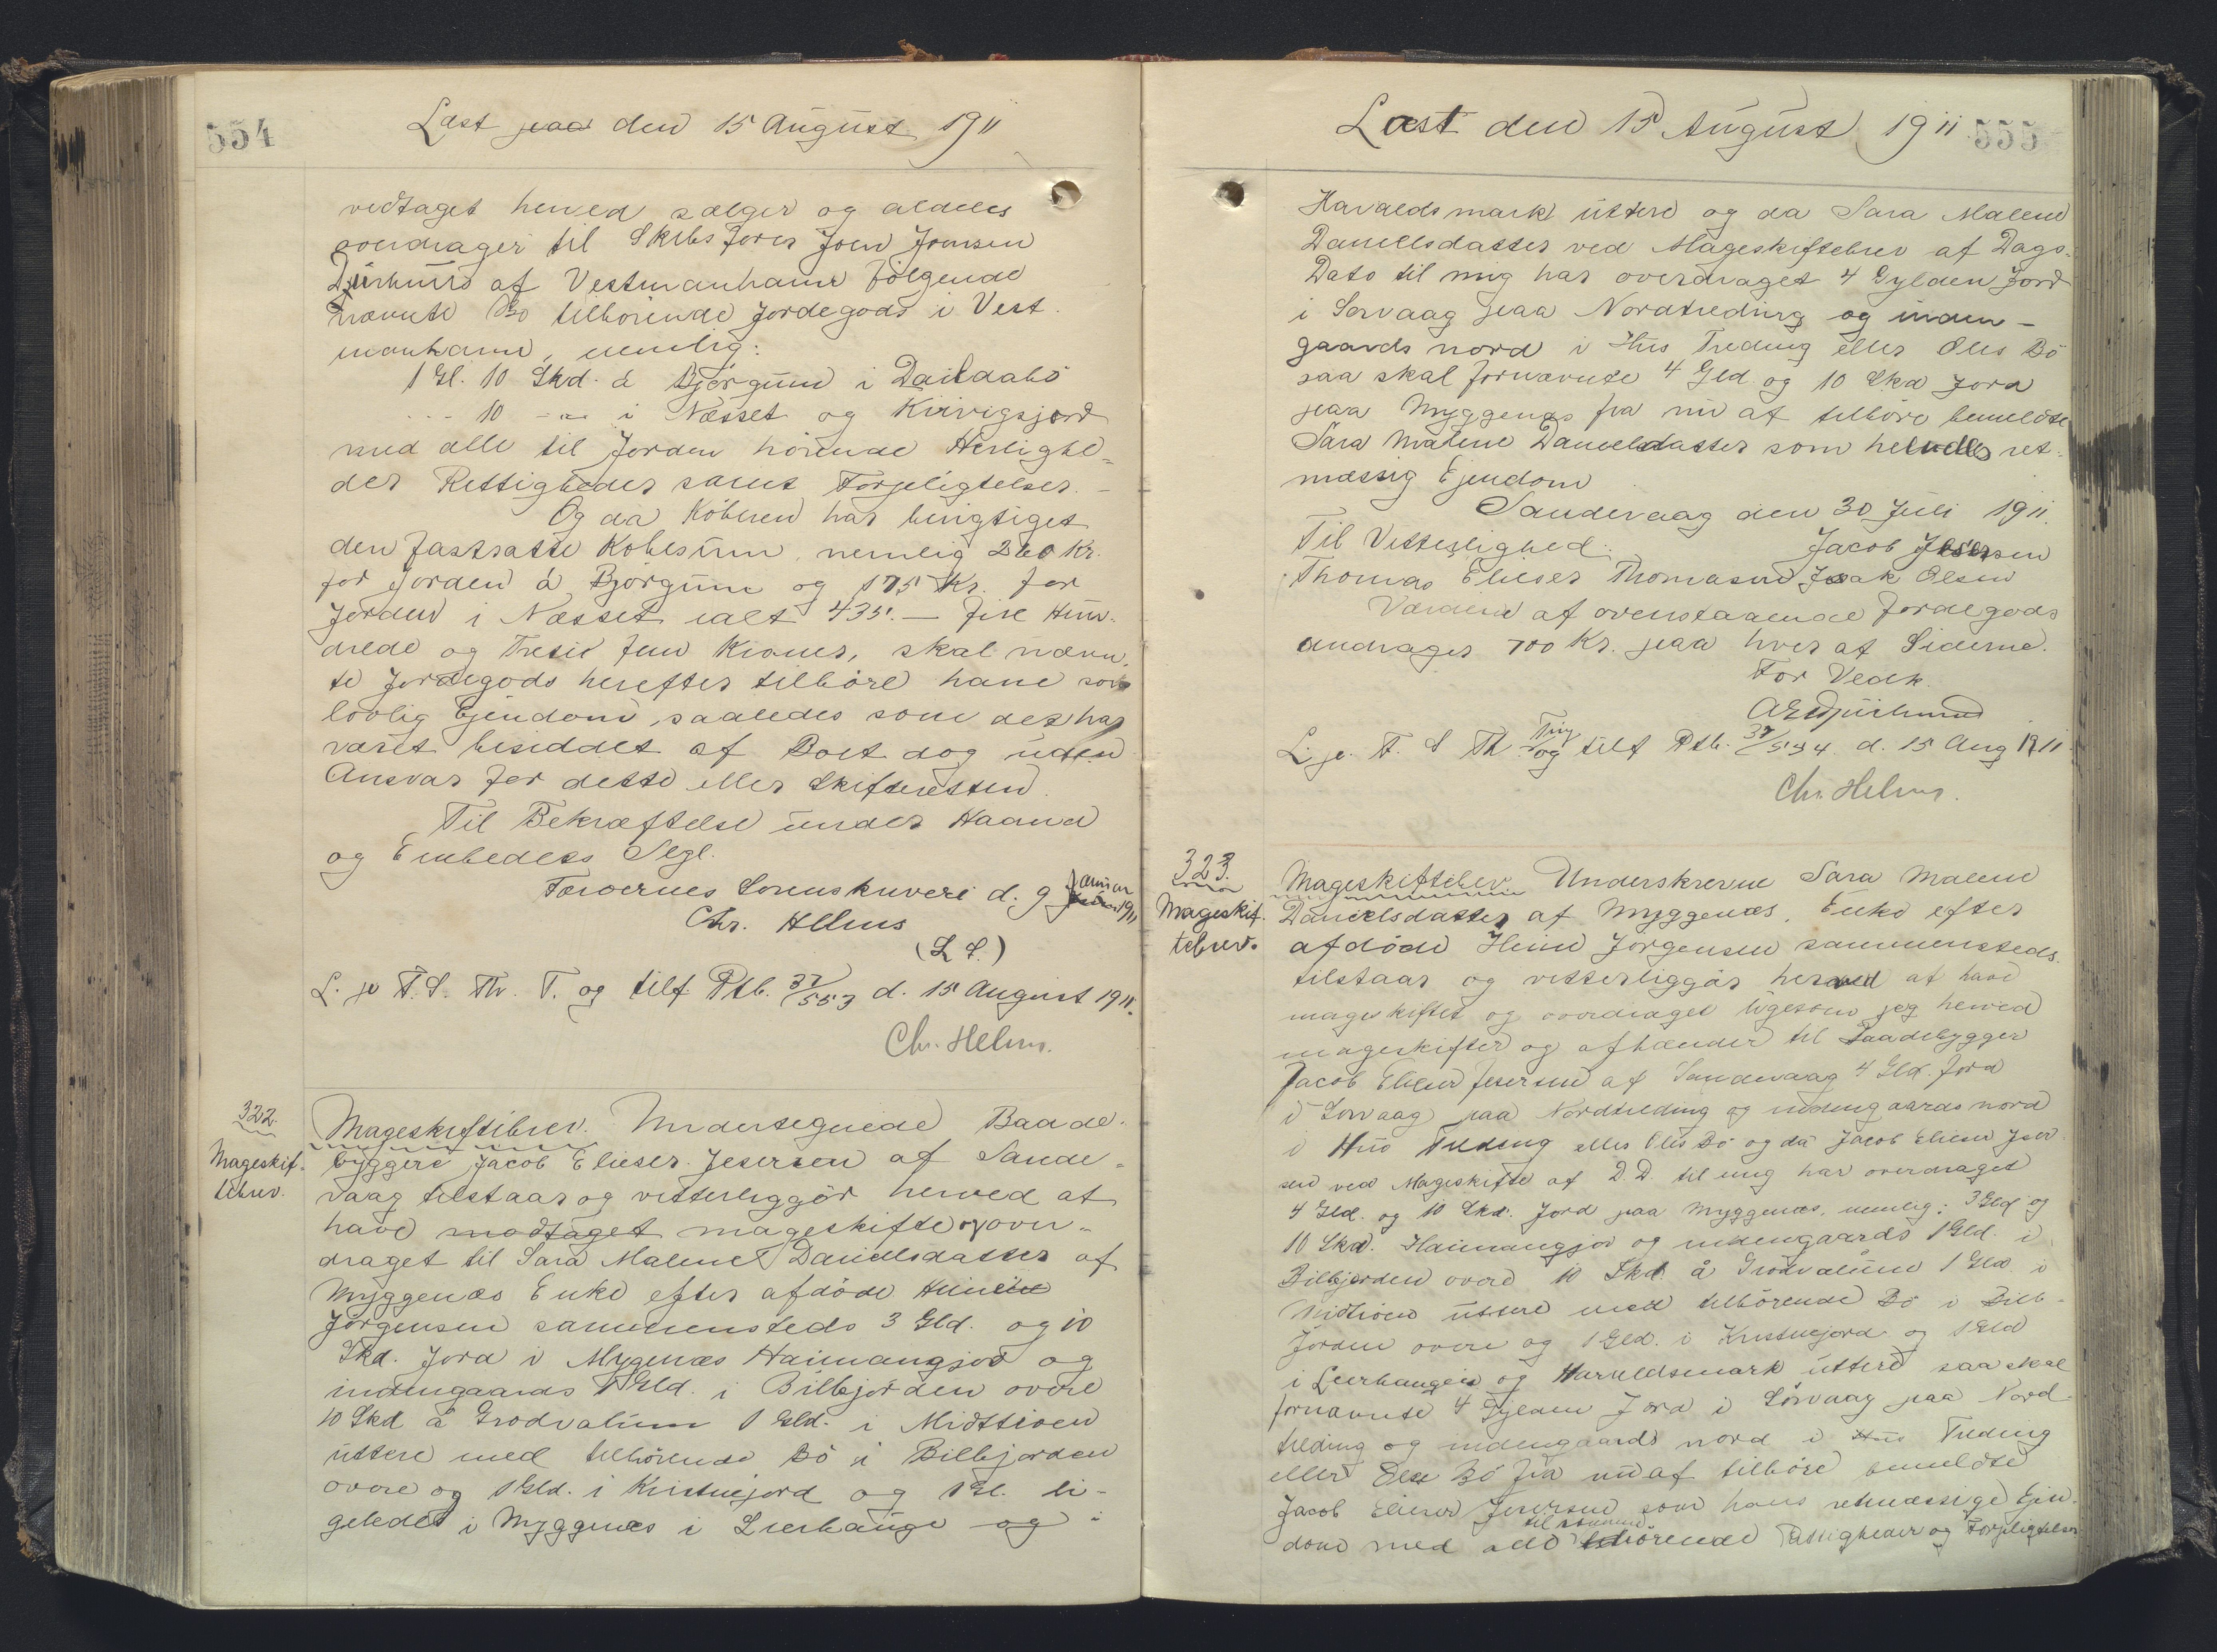 554
Læst paa den 15 August 1911
vedtaget herved sælger og aldeles
overdrager til Skibsfører Joen Joensen
Djurhuus af Vestmanhavn følgende
nævnte Bo tilhørende Jordegods i Vest-
manhavn, nemlig:
1 Gl. 10 Skd. á Bjørgum i Dailaabø
... 10 - " - i Næsset og Kvivigsjord
med alle til Jorden hørende Herlighe=
der Rettigheder samt Forpligtelser. -
Og da Køberen har berigtiget
den fastsatte Købesum, nemlig 260 Kr.
for Jorden á Bjørgum og 175 Kr. for
Jorden i Næsset ialt 435.— fire Hun-
drede og Tresiv fem Kroner, skal nævn-
te Jordegods herefter tilhøre ham som
lovlig Ejendom, saaledes som det har
været besiddet af Boet dog uden
Ansvar for dette eller Skifteretten.
Til Bekræftelse under Haand
og Embedets Segl.
Færøernes Sorenskriveri d. 9 Januar 1911
Chr. Helms
(L S.)
L. p. F. S. Th. T. og tilf Ptb. 37/553 d. 15 August 1911.
Chr. Helms.
322.
Mageskif-
tebrev.
Mageskiftebrev. Undertegnede Baade-
byggere Jacob Elieser Jesersen af Sande=
vaag tilstaar og vitterliggør herved at
have modtaget mageskifte og over-
draget til Sara Malene Danielsdatter af
Myggenæs Enke efter afdøde Heine
Jørgensen sammensteds 3 Gld. og 10
Skd. Jord i Mygenæs Haimangjor og
indengaards 1 Gld. i Bilbjorden overe
10 Skd á Grodvalum 1 Gld. i Midttioen
uttere med tilhørende Bø i Bilbjorden
overe og 1 Gld. i Kristnejord og 1 Gl. li-
geledes i Myggenæs i Leerhauge og i
Læst den 15 August 1911
555
Havaldsmark uttere og da Sara Malene
Danielsdatter ved Mageskiftebrev af Dags-
Dato til mig har overdraget 4 Gylden Jord
i Sørvaag paa Nordtreding og inden-
gaards nord i Hus Treding eller Oles Bø
saa skal fornævnte 4 Gld og 10 Skd Jord
paa Myggenæs fra nu af tilhøre bemeldte
Sara Malene Danielsdatter som hendes ret-
mæssig Ejendom
Sandevaag den 30 Juli 1911.
Til Vitterlighed: Jacob Jesersen
Thomas Elieser Thomasen Isak Olsen
Værdien af ovenstaaende Jordegods
andrager 700 Kr. paa hver af Siderne.
For Vedk.
AEDjurhuus
L. p. F. S Th Ting og tilf Ptb. 37/554. d. 15 Aug 1911.
Chr. Helms.
323.
Mageskif-
tebrev.
Mageskiftebrev Underskrevne Sara Malene
Danielsdatter af Myggenæs, Enke efter
afdøde Heine Jørgensen sammensteds.
tilstaar og vitterliggør herved at have
mageskiftet og overdraget ligesom jeg herved
mageskifter og afhænder til Baadebygger
Jacob Elieser Jesersen af Sandevaag 4 Gld. Jord
i Sørvaag paa Nordtreding og indengaards nord
i Hus Treding eller Oles Bø og da Jacob Elieser Jeser-
sen ved Mageskifte af D. D. til mig har overdraget
4 Gld. og 10 Skd. Jord paa Myggenæs, nemlig: 3 Gld og
10 Skd. Haimangjor og indengaards 1 Gld. i
Bilbjorden overe 10 Skd. å Grodvalum 1 Gld i
Midtioen uttere med tilhørende Bø i Bilb-
jorden overe og 1 Gld. i Kristnejord og 1 Gld
i Leerhaugen og Haruldsmark uttere saa skal
fornævnte 4 Gylden Jord i Sørvaag paa Nord-
treding og indengaards nord i Hus Treding
eller Oles Bø fra nu af tilhøre bemeldte
Jacob Elieser Jesersen som hans retmæssige Ejen-
dom med alle til samme hørende Rettigheder og Forpligtelser